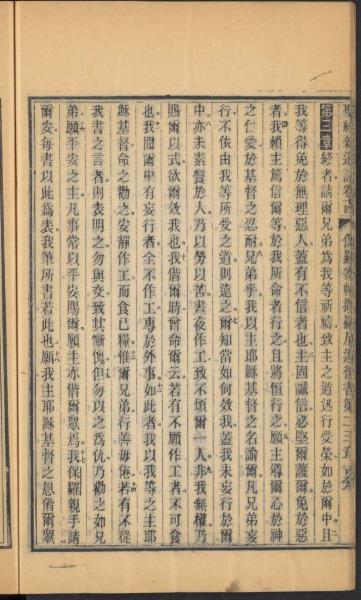 聖經新遺詔卷十四 保羅寄帖撒羅尼迦後書第二三章
第三章 終者請爾兄弟爲我等祈禱致主之道迅行受榮如於爾中且
我等得免於無理惡人蓋有不信者也主固誠信必堅爾護爾免於惡
者我賴主篤信爾等於我所命者行之且將恒行之願主導爾心於神
之仁愛於基督之忍耐兄弟乎我以主耶穌基督之名諭爾凡兄弟妄
行不依由我等所受之道則遠之爾知當如何效我蓋我未妄行於爾
中亦未素餐於人乃以勞以苦晝夜作工致不煩爾一人非我無權乃
賜爾以式欲爾效我也我偕爾時曾命爾云若有不願作工者不可食
也我聞爾中有妄行者全不作工專於外事如此者我以我等之主耶
穌基督命之勸之安靜作工而食己糧惟爾兄弟行善毋倦若有不從
我書之言者則表明之勿與交致其慚愧但勿以之爲仇乃勸之如兄
弟願平安之主凡事常以平安賜爾願主亦偕爾眾爲我保羅親手請
爾安每書以此爲表我筆所書若此也願我主耶穌基督之恩偕爾眾